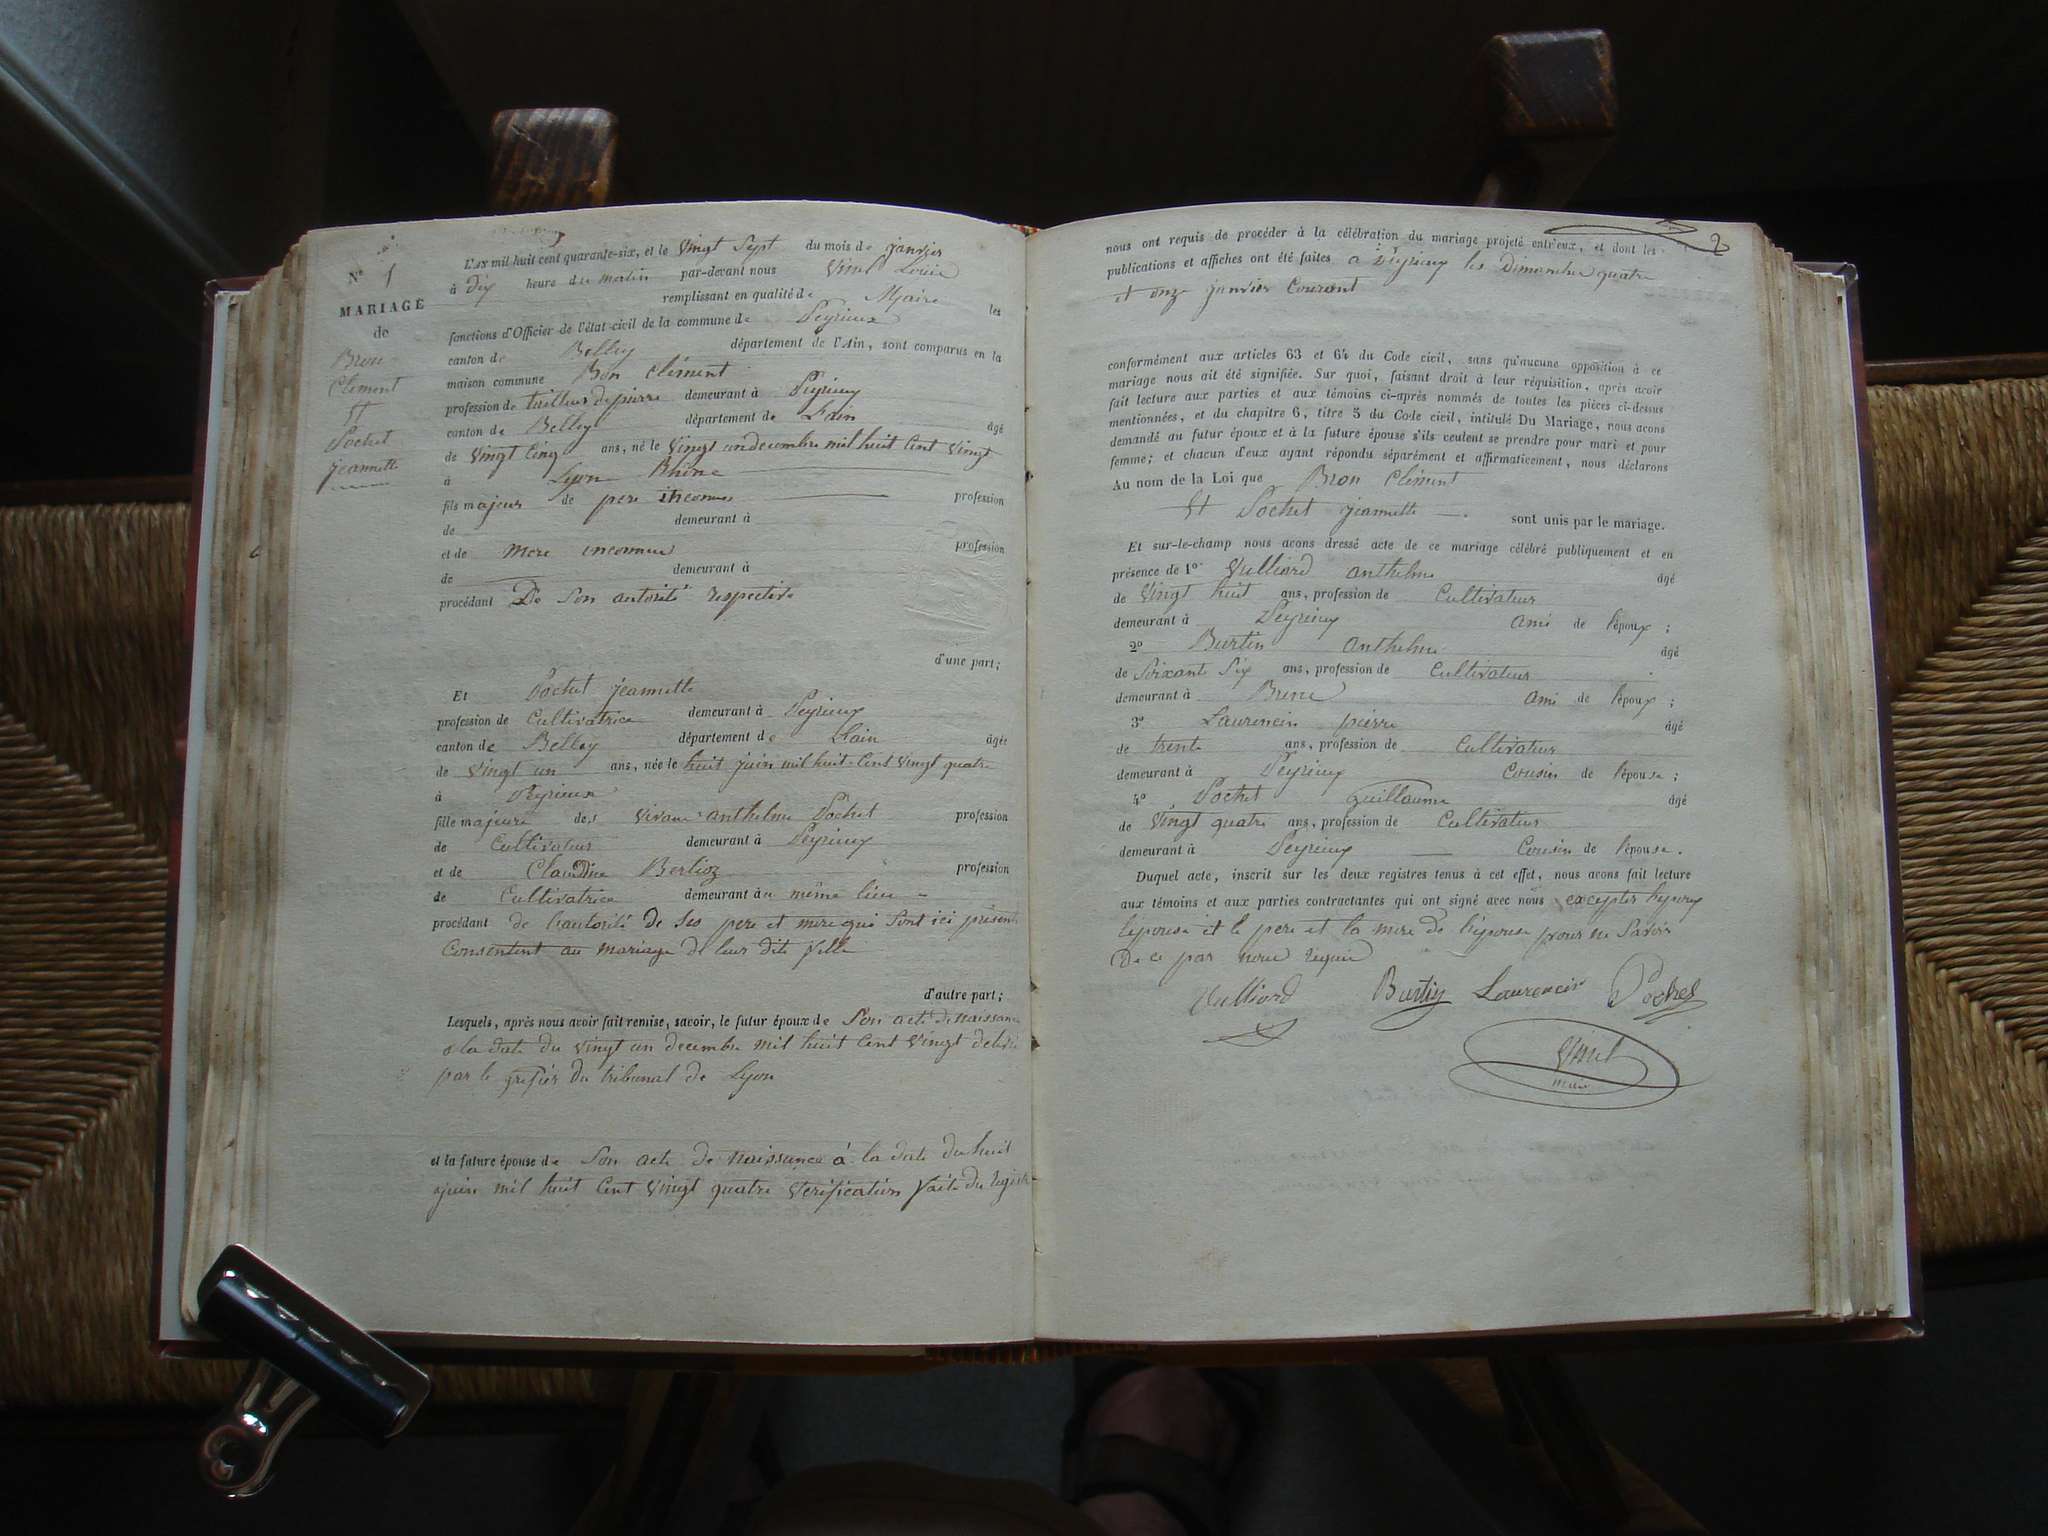 N° 1
MARIAGE
de
Bron
Clément
Et
Pochet
jeannette
L'AN mil huit cent quarante-six, et le vingt Sept du mois de janvier
à dix heure du matin par-devant nous Vinel Louis
remplissant en qualité de Maire les
fonctions d'Officier de l'état-civil de la commune de Peyrieux
canton de Belley département de l'Ain, sont comparus en la
maison commune Bron clément
profession de tailleur de pierre demeurant à Peyrieux
canton de Belley département de L'ain âgé
de vingt cinq ans, né le vingt un decembre mil huit Cent vingt
à Lyon Rhône
fils majeur de pere inconnu profession
de demeurant à
et de mere inconnue profession
de demeurant à
procédant De Son autorité respective
d'une part;
Et Pochet jeannette
profession de Cultivatrice demeurant à Peyrieux
canton de Belley département de L'ain âgée
de vingt un ans, née le huit juin mil huit Cent vingt quatre
à Peyrieux
fille majeure des vivans anthelme Pochet profession
de Cultivateur demeurant à Peyrieux
et de Claudine Berlioz profession
de Cultivatrice demeurant au même lieu
procédant de L'autorité de Ses pere et mere qui Sont ici présent
Consentent au mariage de leur dite fille
d'autre part;
Lesquels, après nous avoir fait remise, savoir, le futur époux de Son acte de naissance
a la date du vingt un decembre mil huit Cent vingt délivré
par le grefier du tribunal de Lyon
et la future épouse de Son acte de naissance à la date du huit
juin mil huit Cent vingt quatre verification faite du registre
2
nous ont requis de procéder à la célébration du mariage projeté entr'eux, et dont les
publications et affiches ont été faites à Peyrieux les Dimanches quatre
et onze janvier Courant
conformément aux articles 63 et 64 du Code civil, sans qu'aucune opposition à ce
mariage nous ait été signifiée. Sur quoi, faisant droit à leur réquisition, après avoir
fait lecture aux parties et aux témoins ci-après nommés de toutes les pièces ci-dessus
mentionnées, et du chapitre 6, titre 5 du Code civil, intitulé Du Mariage, nous avons
demandé au futur époux et à la future épouse s'ils veulent se prendre pour mari et pour
femme; et chacun d'eux ayant répondu séparément et affirmativement, nous déclarons
Au nom de la Loi que Bron Clément
Et Pochet jeannette sont unis par le mariage.
Et sur-le-champ nous avons dressé acte de ce mariage célébré publiquement et en
présence de 1° Vulliord anthelme âgé
de vingt huit ans, profession de Cultivateur
demeurant à Peyrieux ami de l'époux;
2° Burtin anthelme âgé
de Soixante Six ans, profession de Cultivateur
demeurant à Brens ami de l'époux;
3° Laurencin pierre âgé
de trente ans, profession de Cultivateur
demeurant à Peyrieux Cousin de l'épouse;
4° Pochet guillaume âgé
de vingt quatre ans, profession de Cultivateur
demeurant à Peyrieux Cousin de l'épouse.
Duquel acte, inscrit sur les deux registres tenus à cet effet, nous avons fait lecture
aux témoins et aux parties contractantes qui ont signé avec nous excepter l'epoux
l'epouse et le pere et la mere de l'épouse pour ne Savoir
De ce par nous requis
Vulliord Burtin Laurencin Pochet
Vinel
maire